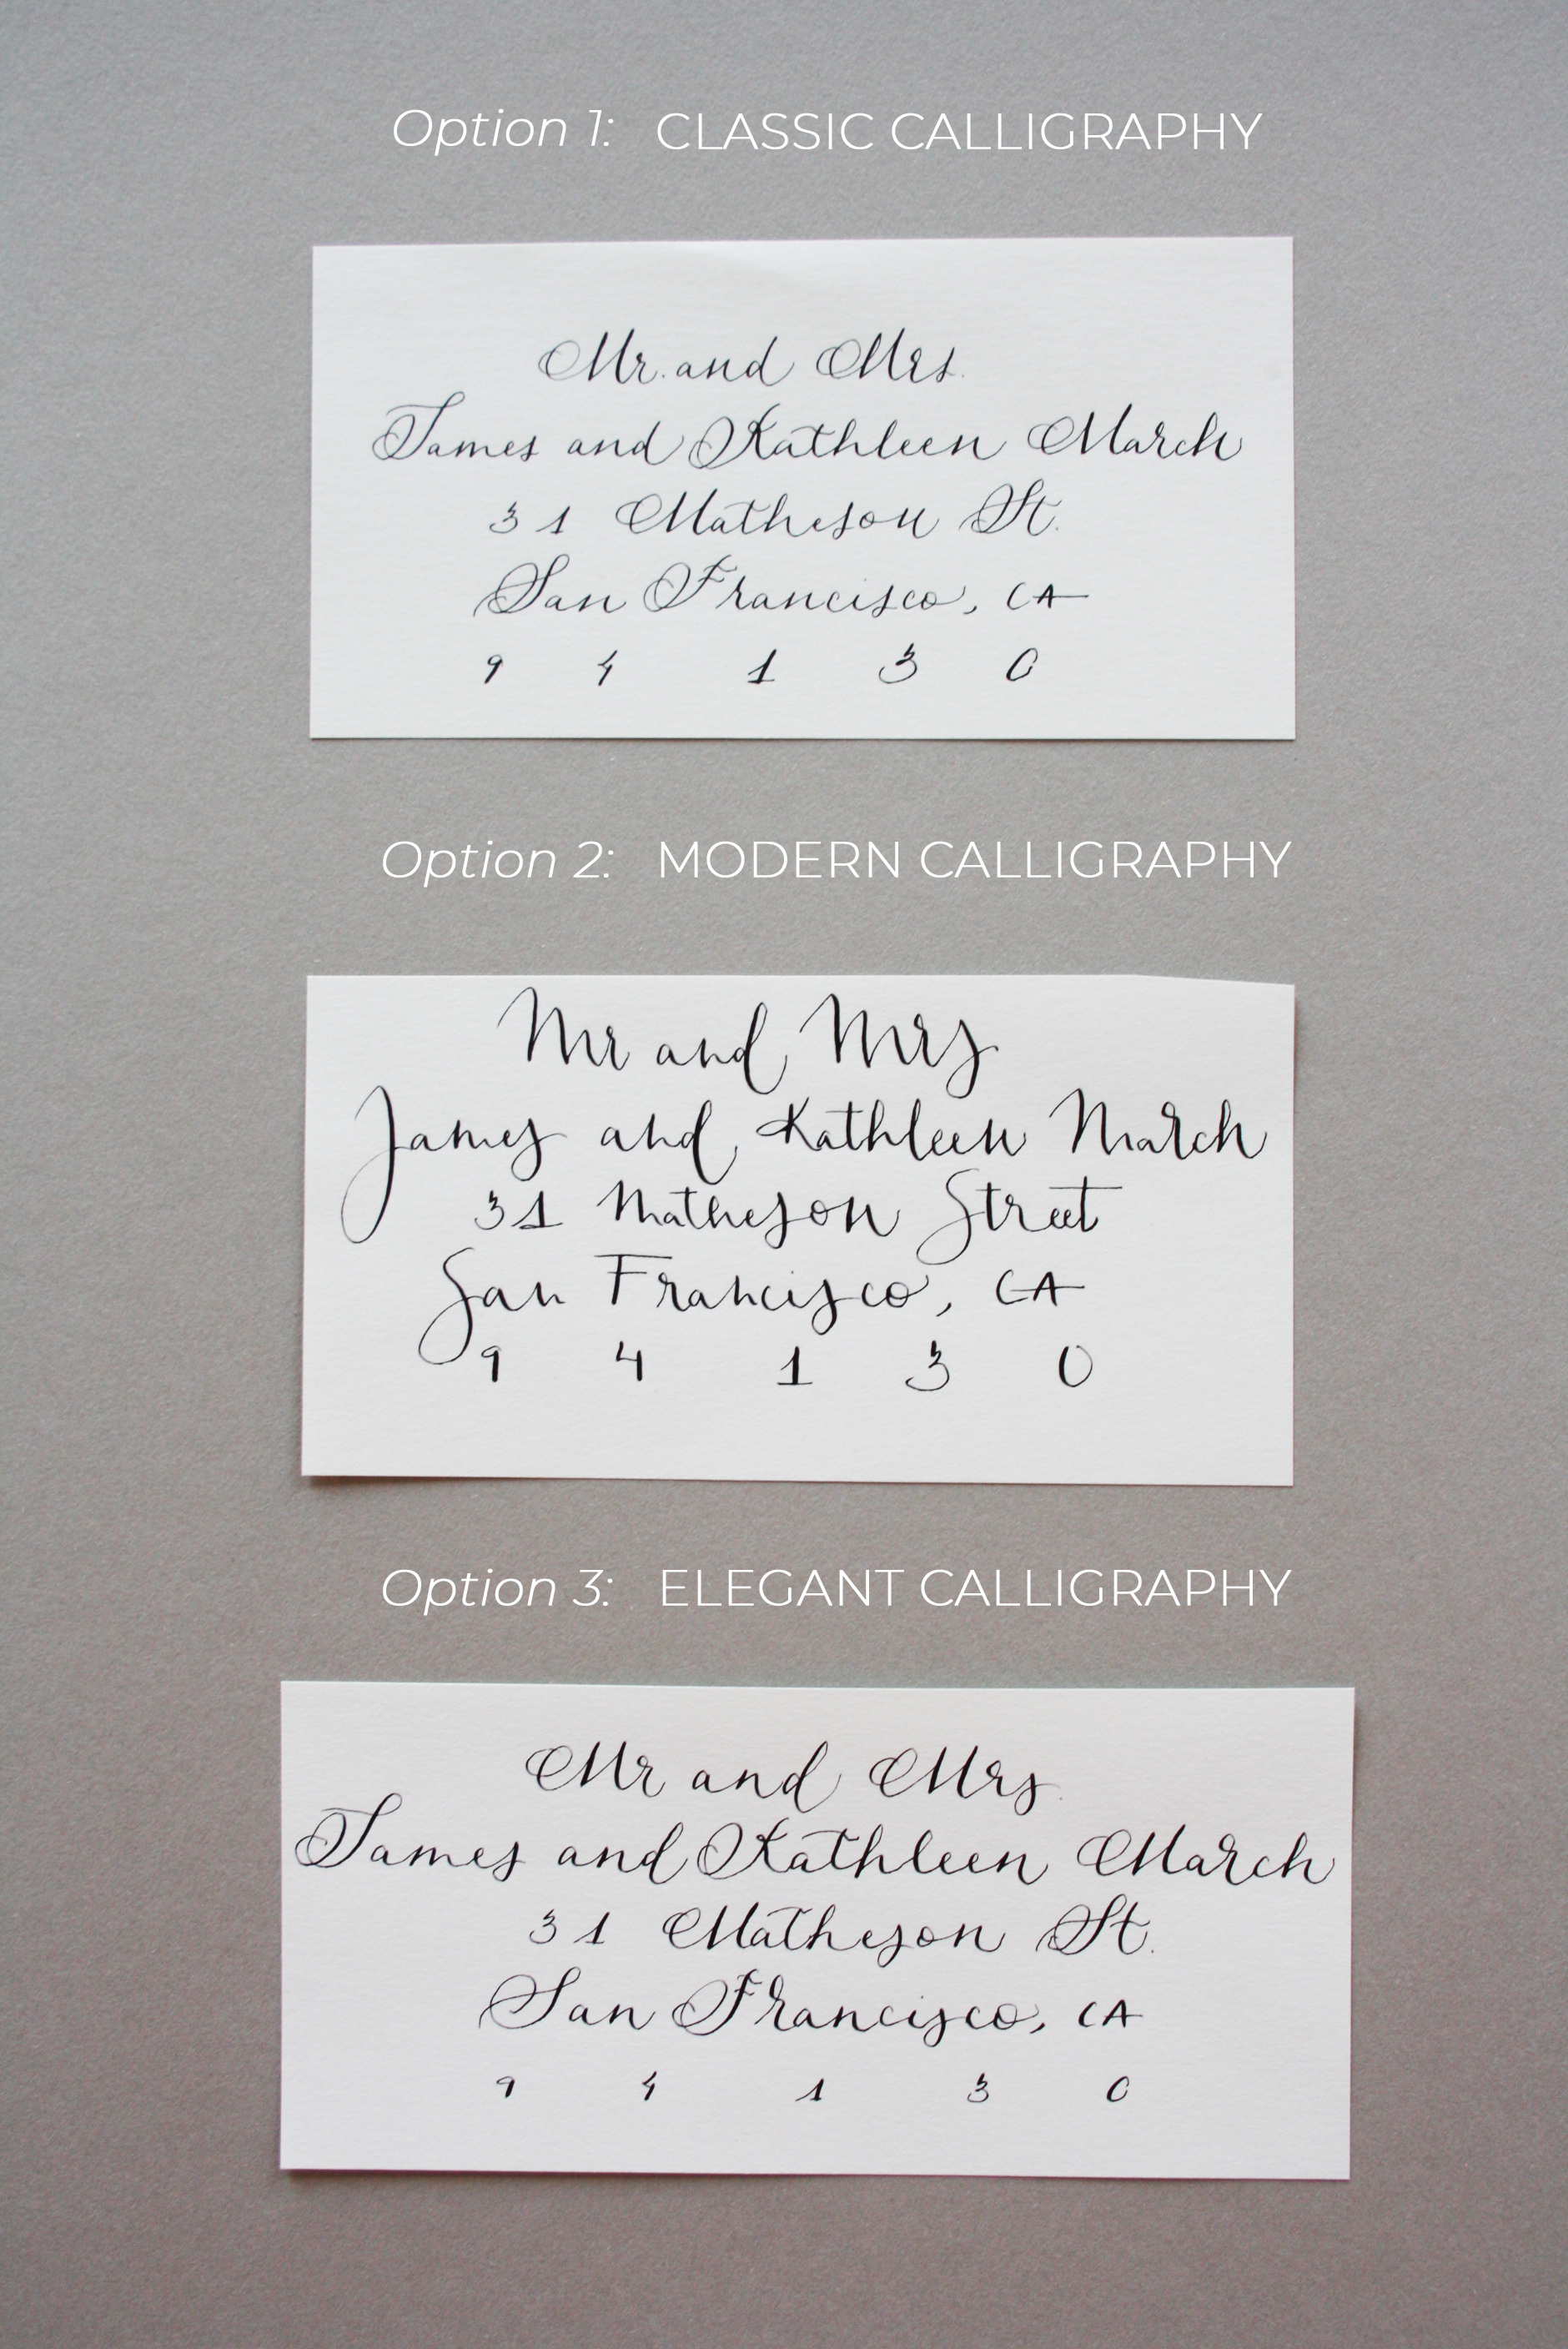 Option 1: CLASSIC CALLIGRAPHY
Mr. and Mrs.
James and Kathleen March
31 Matheson St.
San Francisco, CA
9 4 1 3 0
Option 2: MODERN CALLIGRAPHY
Mr and Mrs
James and Kathleen March
31 Matheson Street
San Francisco, CA
9 4 1 3 0
Option 3: ELEGANT CALLIGRAPHY
Mr and Mrs.
James and Kathleen March
31 Matheson St.
San Francisco, CA
9 4 1 3 0